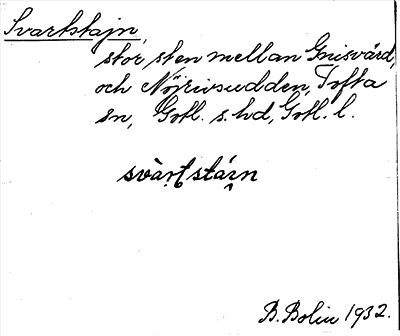 Svartstajn,
stor sten mellan Gnisvärd
och Nöjrivsudden, Tofta
sn, Gotl. s. hd, Gotl. l.
svàrt stáin
B. Bolin 1932.